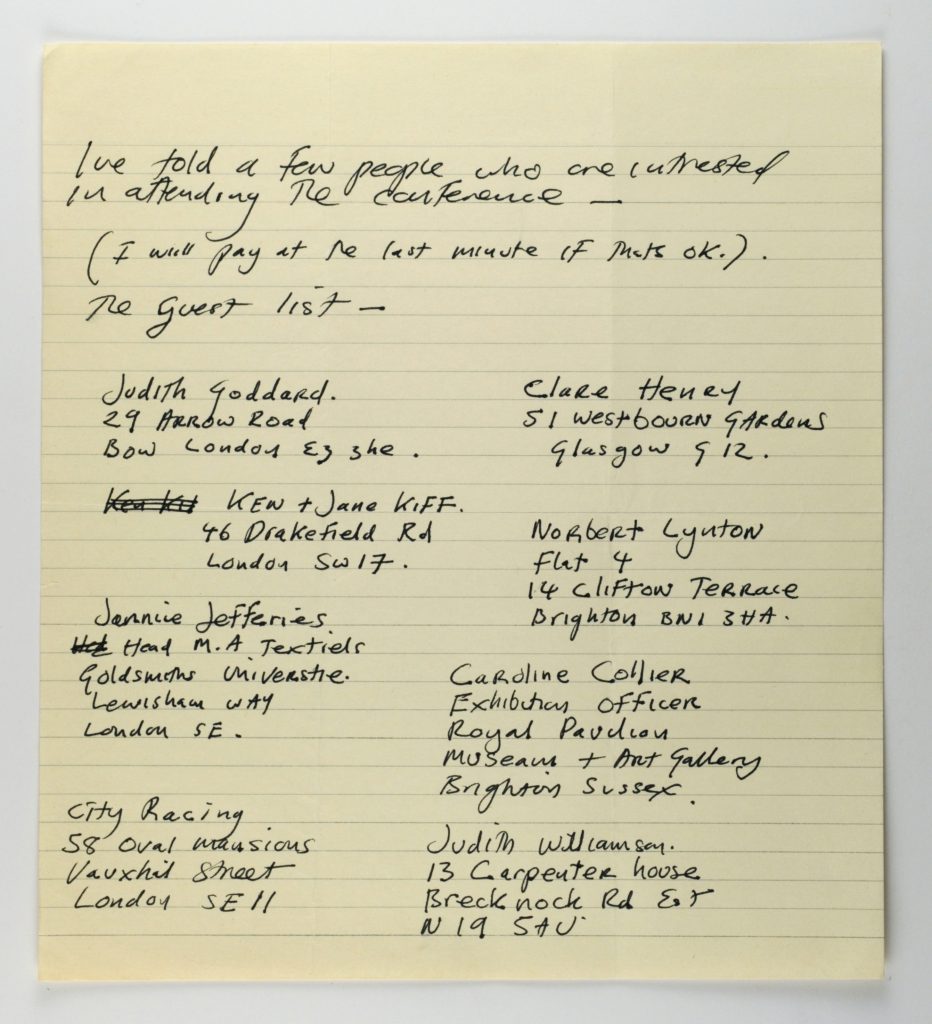 Ive told a few people who are intrested
in attending The conference —
(I will pay at the last minute if thats OK.).
The Guest list —
Judith Goddard.
29 Arrow Road
Bow London E3 3he.
KEN + Jane KiFF.
46 Drakefield Rd
London SW17.
Jannice Jefferies
Head M.A Textiels
Goldsmiths Universtie.
Lewisham WAY
London SE.
City Racing
58 Oval mansions
Vauxhil Street
London SE11
Clare Henry
51 Westbourn GARdens
Glasgow G12.
Norbert Lynton
Flat 4
14 Clifton Terrace
Brighton BN1 3HA.
Caroline Collier
Exhibition officer
Royal Pavilion
Museam + Art Gallery
Brighton Sussex.
Judith Williamson.
13 Carpenter house
Brecknock Rd Est
N19 5AU